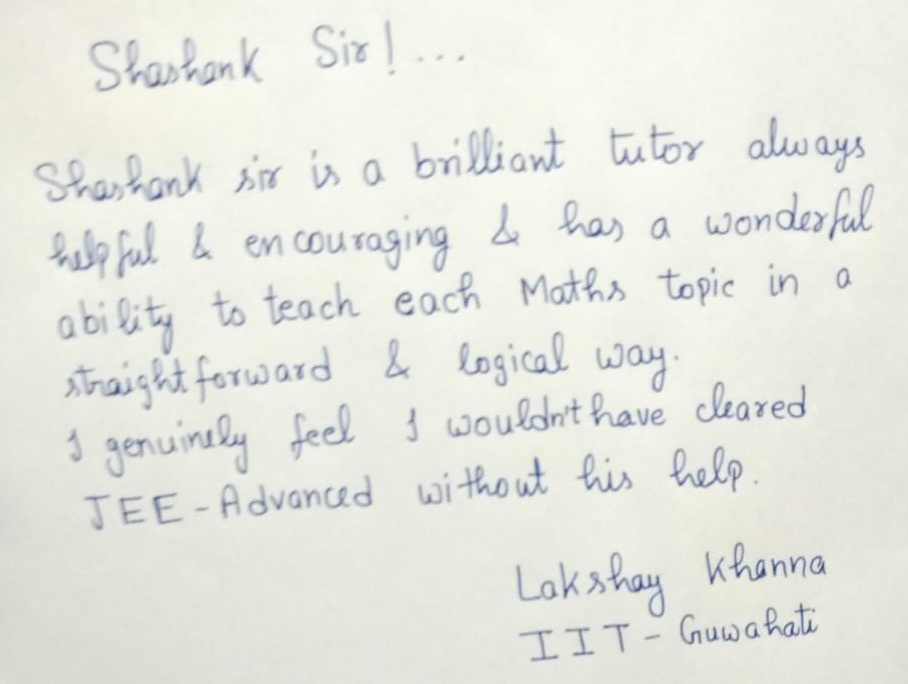 Shashank Sir!...
Shashank sir is a brilliant tutor always
helpful & encouraging & has a wonderful
ability to teach each Maths topic in a
straight forward & logical way.
I genuinely feel I wouldn't have cleared
JEE-Advanced without his help.
Lakshay Khanna
IIT-Guwahati